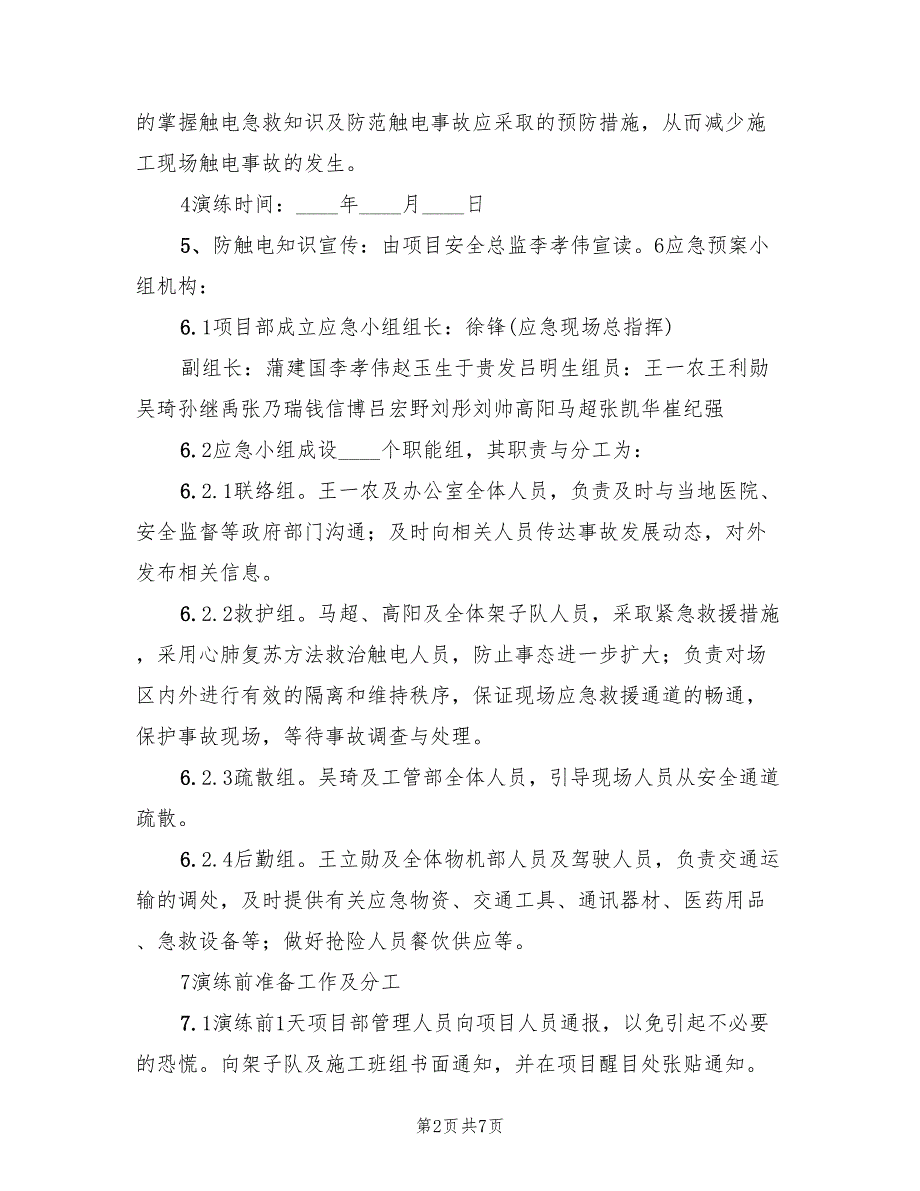 的掌握触电急救知识及防范触电事故应采取的预防措施，从而减少施
工现场触电事故的发生。
4演练时间：____年____月____日
5、防触电知识宣传：由项目安全总监李孝伟宣读。6应急预案小
组机构：
6.1项目部成立应急小组组长：徐锋(应急现场总指挥)
副组长：蒲建国李孝伟赵玉生于贵发吕明生组员：王一农王利勋
吴琦孙继禹张乃瑞钱信博吕宏野刘彤刘帅高阳马超张凯华崔纪强
6.2应急小组成设____个职能组，其职责与分工为：
6.2.1联络组。王一农及办公室全体人员，负责及时与当地医院、
安全监督等政府部门沟通；及时向相关人员传达事故发展动态，对外
发布相关信息。
6.2.2救护组。马超、高阳及全体架子队人员，采取紧急救援措施
，采用心肺复苏方法救治触电人员，防止事态进一步扩大；负责对场
区内外进行有效的隔离和维持秩序，保证现场应急救援通道的畅通，
保护事故现场，等待事故调查与处理。
6.2.3疏散组。吴琦及工管部全体人员，引导现场人员从安全通道
疏散。
6.2.4后勤组。王立勋及全体物机部人员及驾驶人员，负责交通运
输的调处，及时提供有关应急物资、交通工具、通讯器材、医药用品
、急救设备等；做好抢险人员餐饮供应等。
7演练前准备工作及分工
7.1演练前1天项目部管理人员向项目人员通报，以免引起不必要
的恐慌。向架子队及施工班组书面通知，并在项目醒目处张贴通知。
第2页共7页